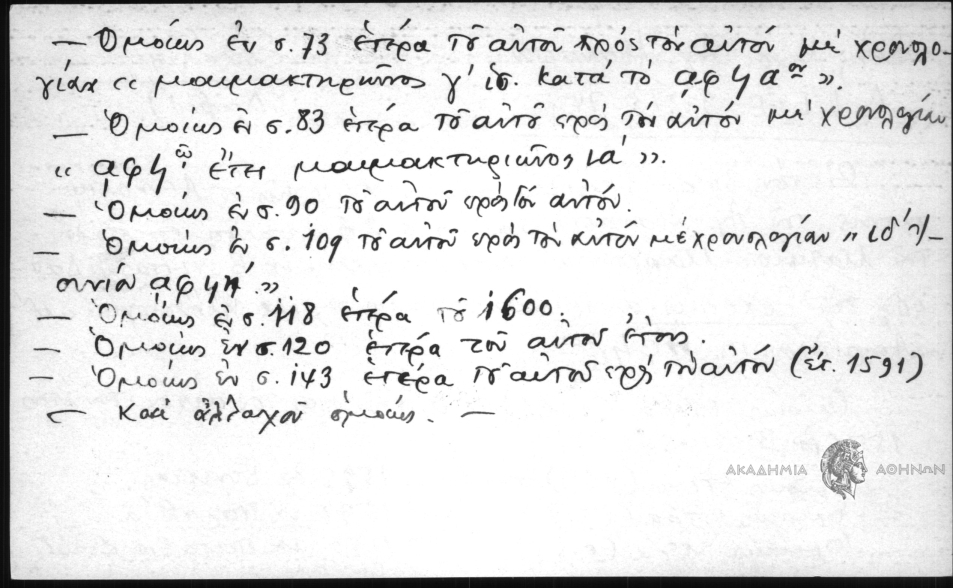 — Ὁμοίως ἐν σ. 73 ἑτέρα τοῦ αὐτοῦ πρός τόν αὐτόν μέ χρονολο-
γίαν « μαιμακτηριῶνος γ' ἱσ. κατά τό αφϟα ον ».
— Ὁμοίως ἐν σ. 83 ἑτέρα τοῦ αὐτοῦ πρός τόν αὐτόν μέ χρονολογίαν
« αφϟ ῳ ἔτει μαιμακτηριῶνος ια' ».
— Ὁμοίως ἐν σ. 90 τοῦ αὐτοῦ πρός τόν αὐτόν.
— Ὁμοίως ἐν σ. 109 τοῦ αὐτοῦ πρός τόν αὐτόν μέ χρονολογίαν „ ιδ'
αφϟή. »
— Ὁμοίως ἐν σ. 118 ἑτέρα τοῦ 1600.
— Ὁμοίως ἐν σ. 120 ἑτέρα τοῦ αὐτοῦ ἔτους.
— Ὁμοίως ἐν σ. 143 ἑτέρα τοῦ αὐτοῦ πρός τόν αὐτόν (ἔτ. 1591)
— Και ἀλλαχοῦ ὁμοίως. —
ΑΚΑΔΗΜΙΑ ΑΘΗΝΩΝ